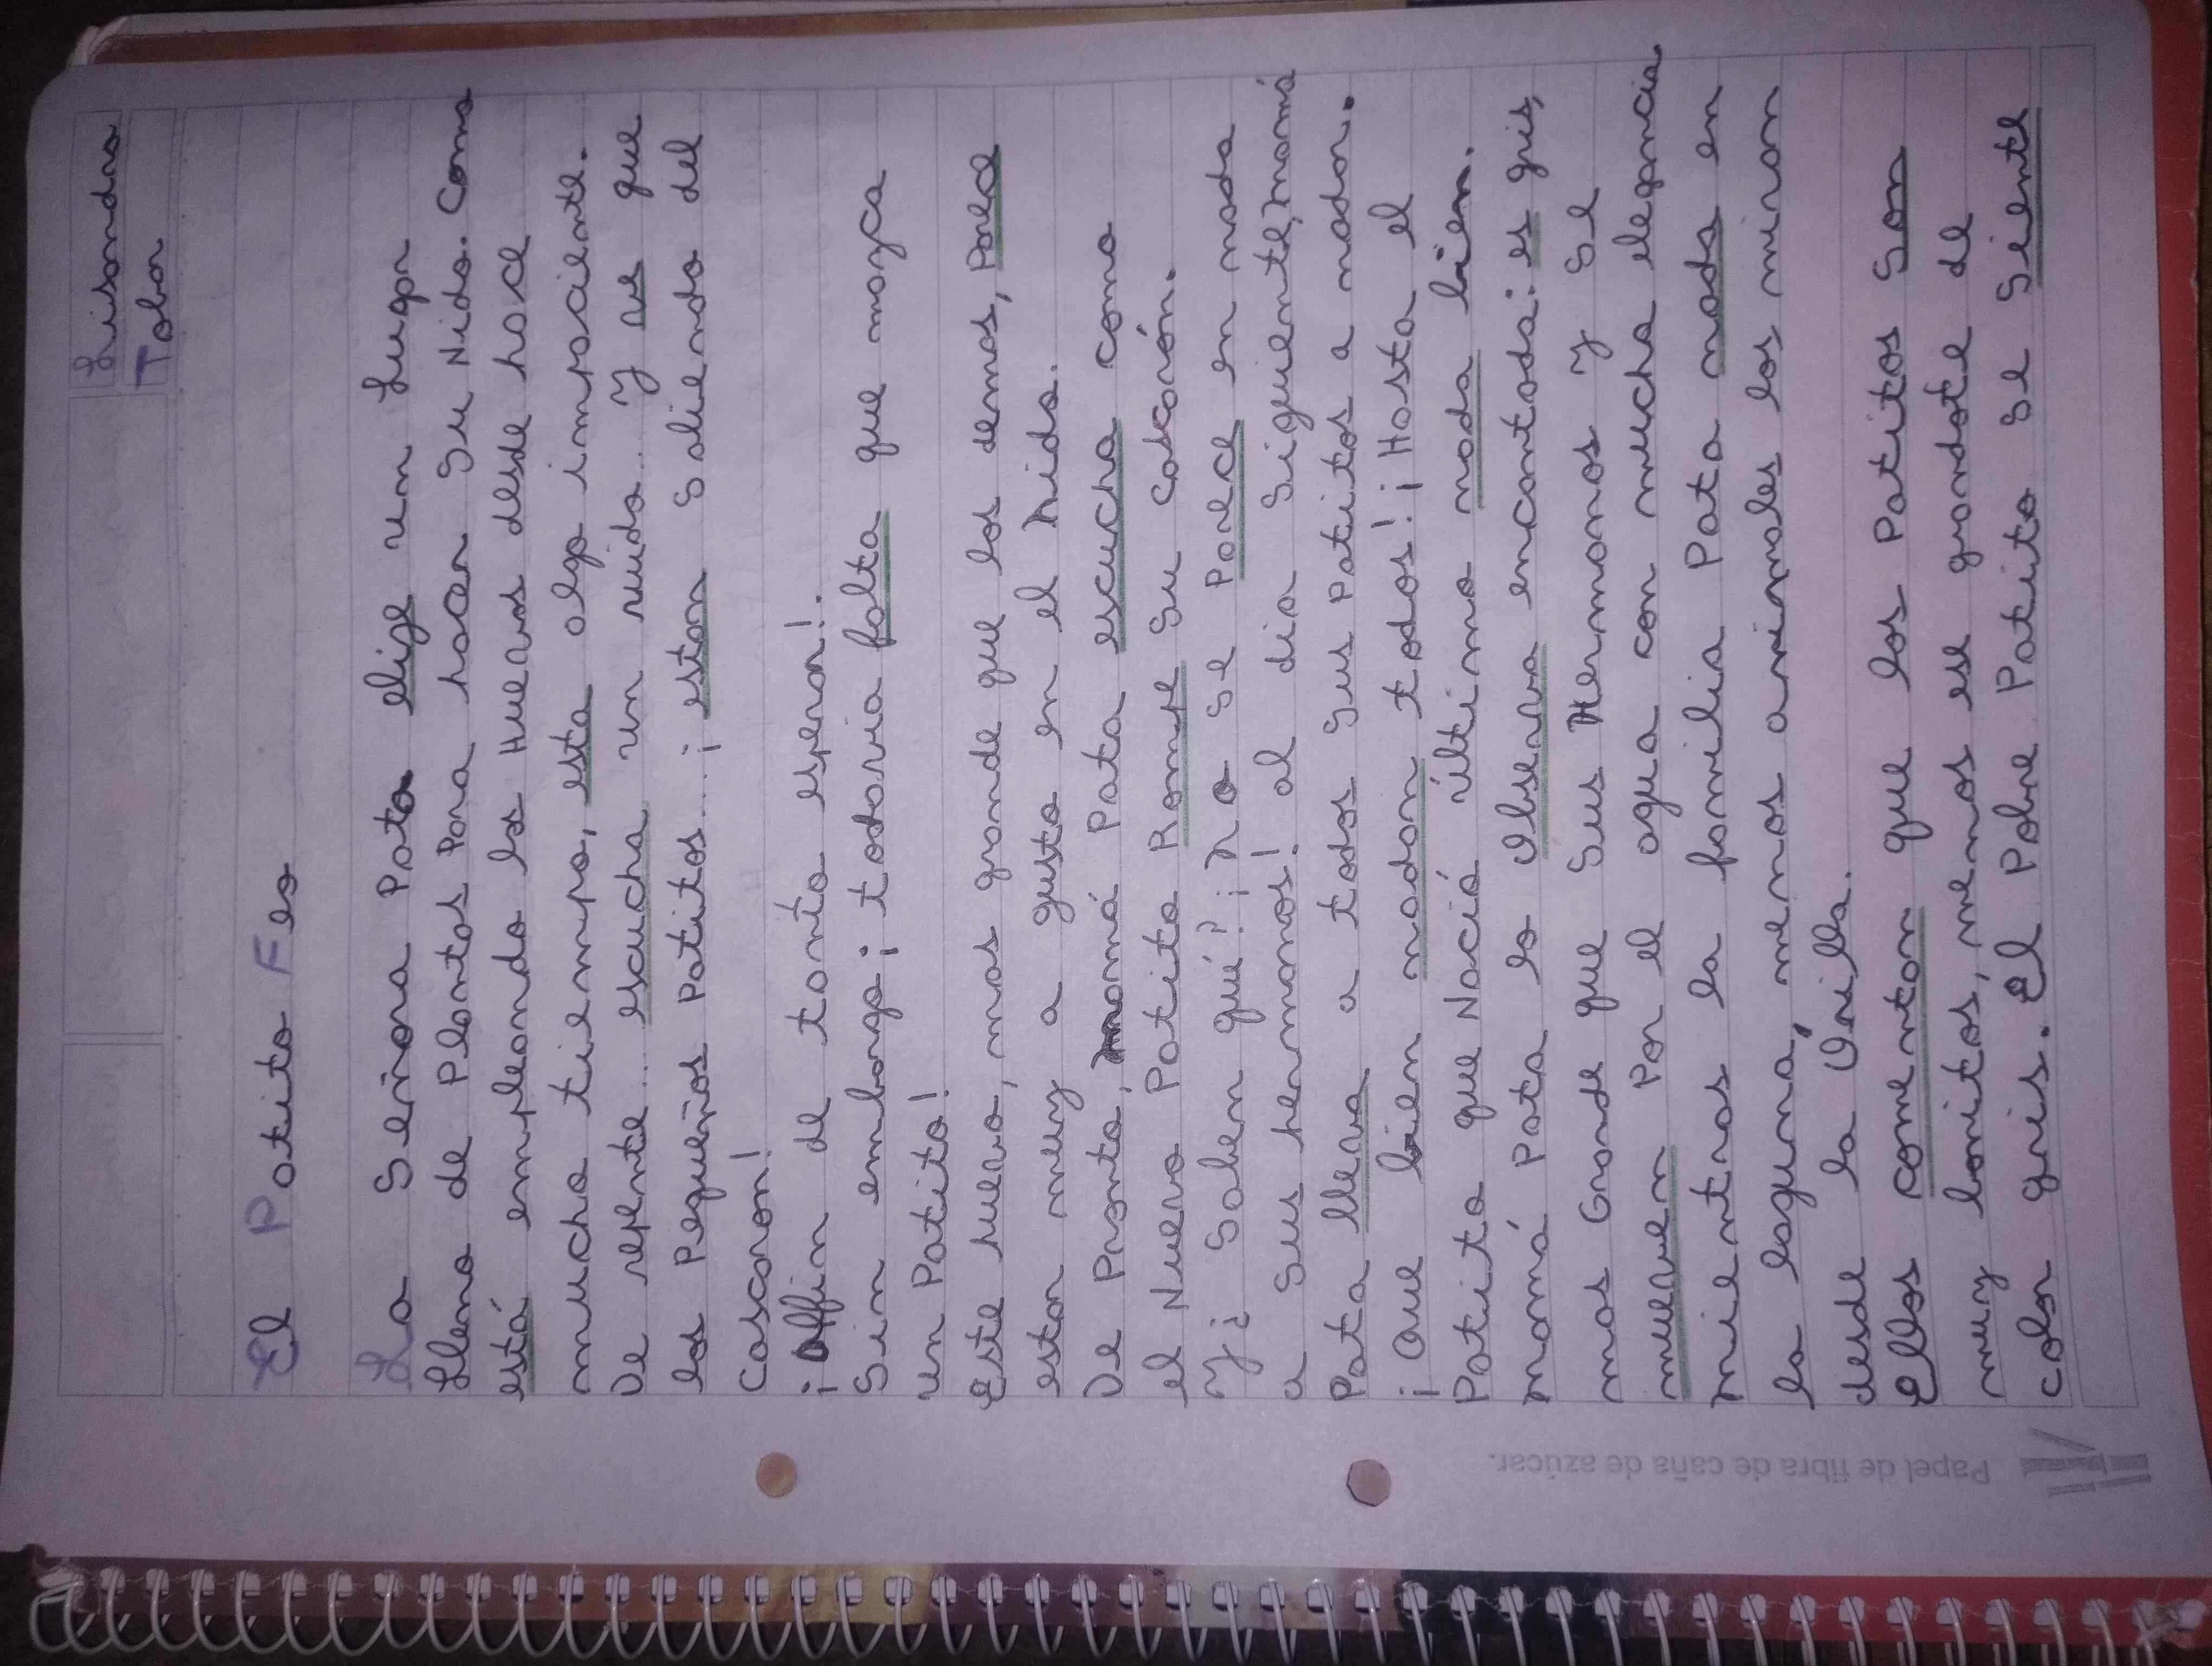 Lisandro
Tobar
El Patito Feo
La Señora Pata elige un Lugar
Lleno de Plantas Para hacer Su Nido. Como
está empleando los Huevos desde hace
mucho tiempo, esta algo impaciente.
De repente... escucha un ruido... y ve que
los Pequeños Patitos... ¡estan Saliendo del
Cascaron!
¡Alfin de tanta esperar!.
Sin embargo ¡todavia falta que nazca
un Patito!
Este huevo, mas grande que los demas, Parece
estar muy a gusto en el Nido.
De Pronto, mamá Pata escucha como
el Nuevo Patito Rompe Su Cascarón.
Y ¿Saben qué? ¡No Se Parece en nada
a Sus hermanos! al dia Siguiente, mamá
Pata lleva a todos Sus Patitos a nadar.
¡Que bien nadan todos! ¡Hasta el
Patito que Nació último nada bien.
mamá Pata lo Observa encantada: es gris,
mas Grande que Sus Hermanos y Se
mueven Por el agua con mucha elegancia
mientras la familia Pata nada en
la laguna, menos animales los miran
desde la Orilla.
Ellos comentan que los Patitos Son
muy bonitos, menos ese grandote de
color gris. El Pobre Patito Se Siente
Papel de fibra de caña de azúcar.